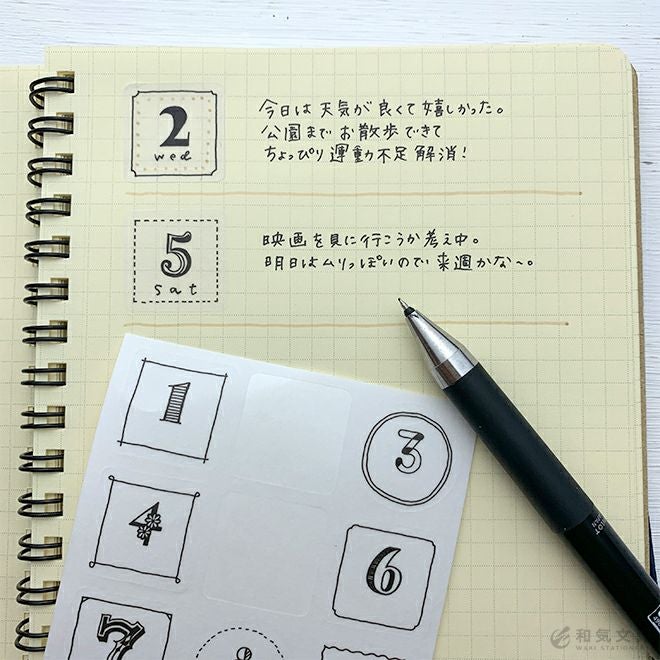 2
wed
今日は天気が良くて嬉しかった。
公園までお散歩できて
ちょっぴり運動不足解消！
5
sat
映画を見に行こうか考え中。
明日はムリっぽいので来週かな〜。
1
3
4
6
7
和気文
WAKI STATIONER